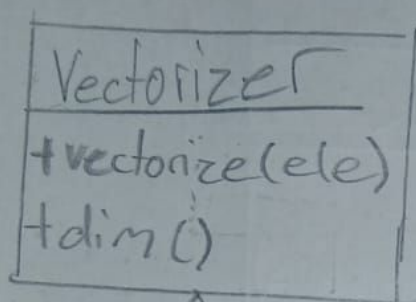 Vectorizer
+vectorize(ele)
+dim()